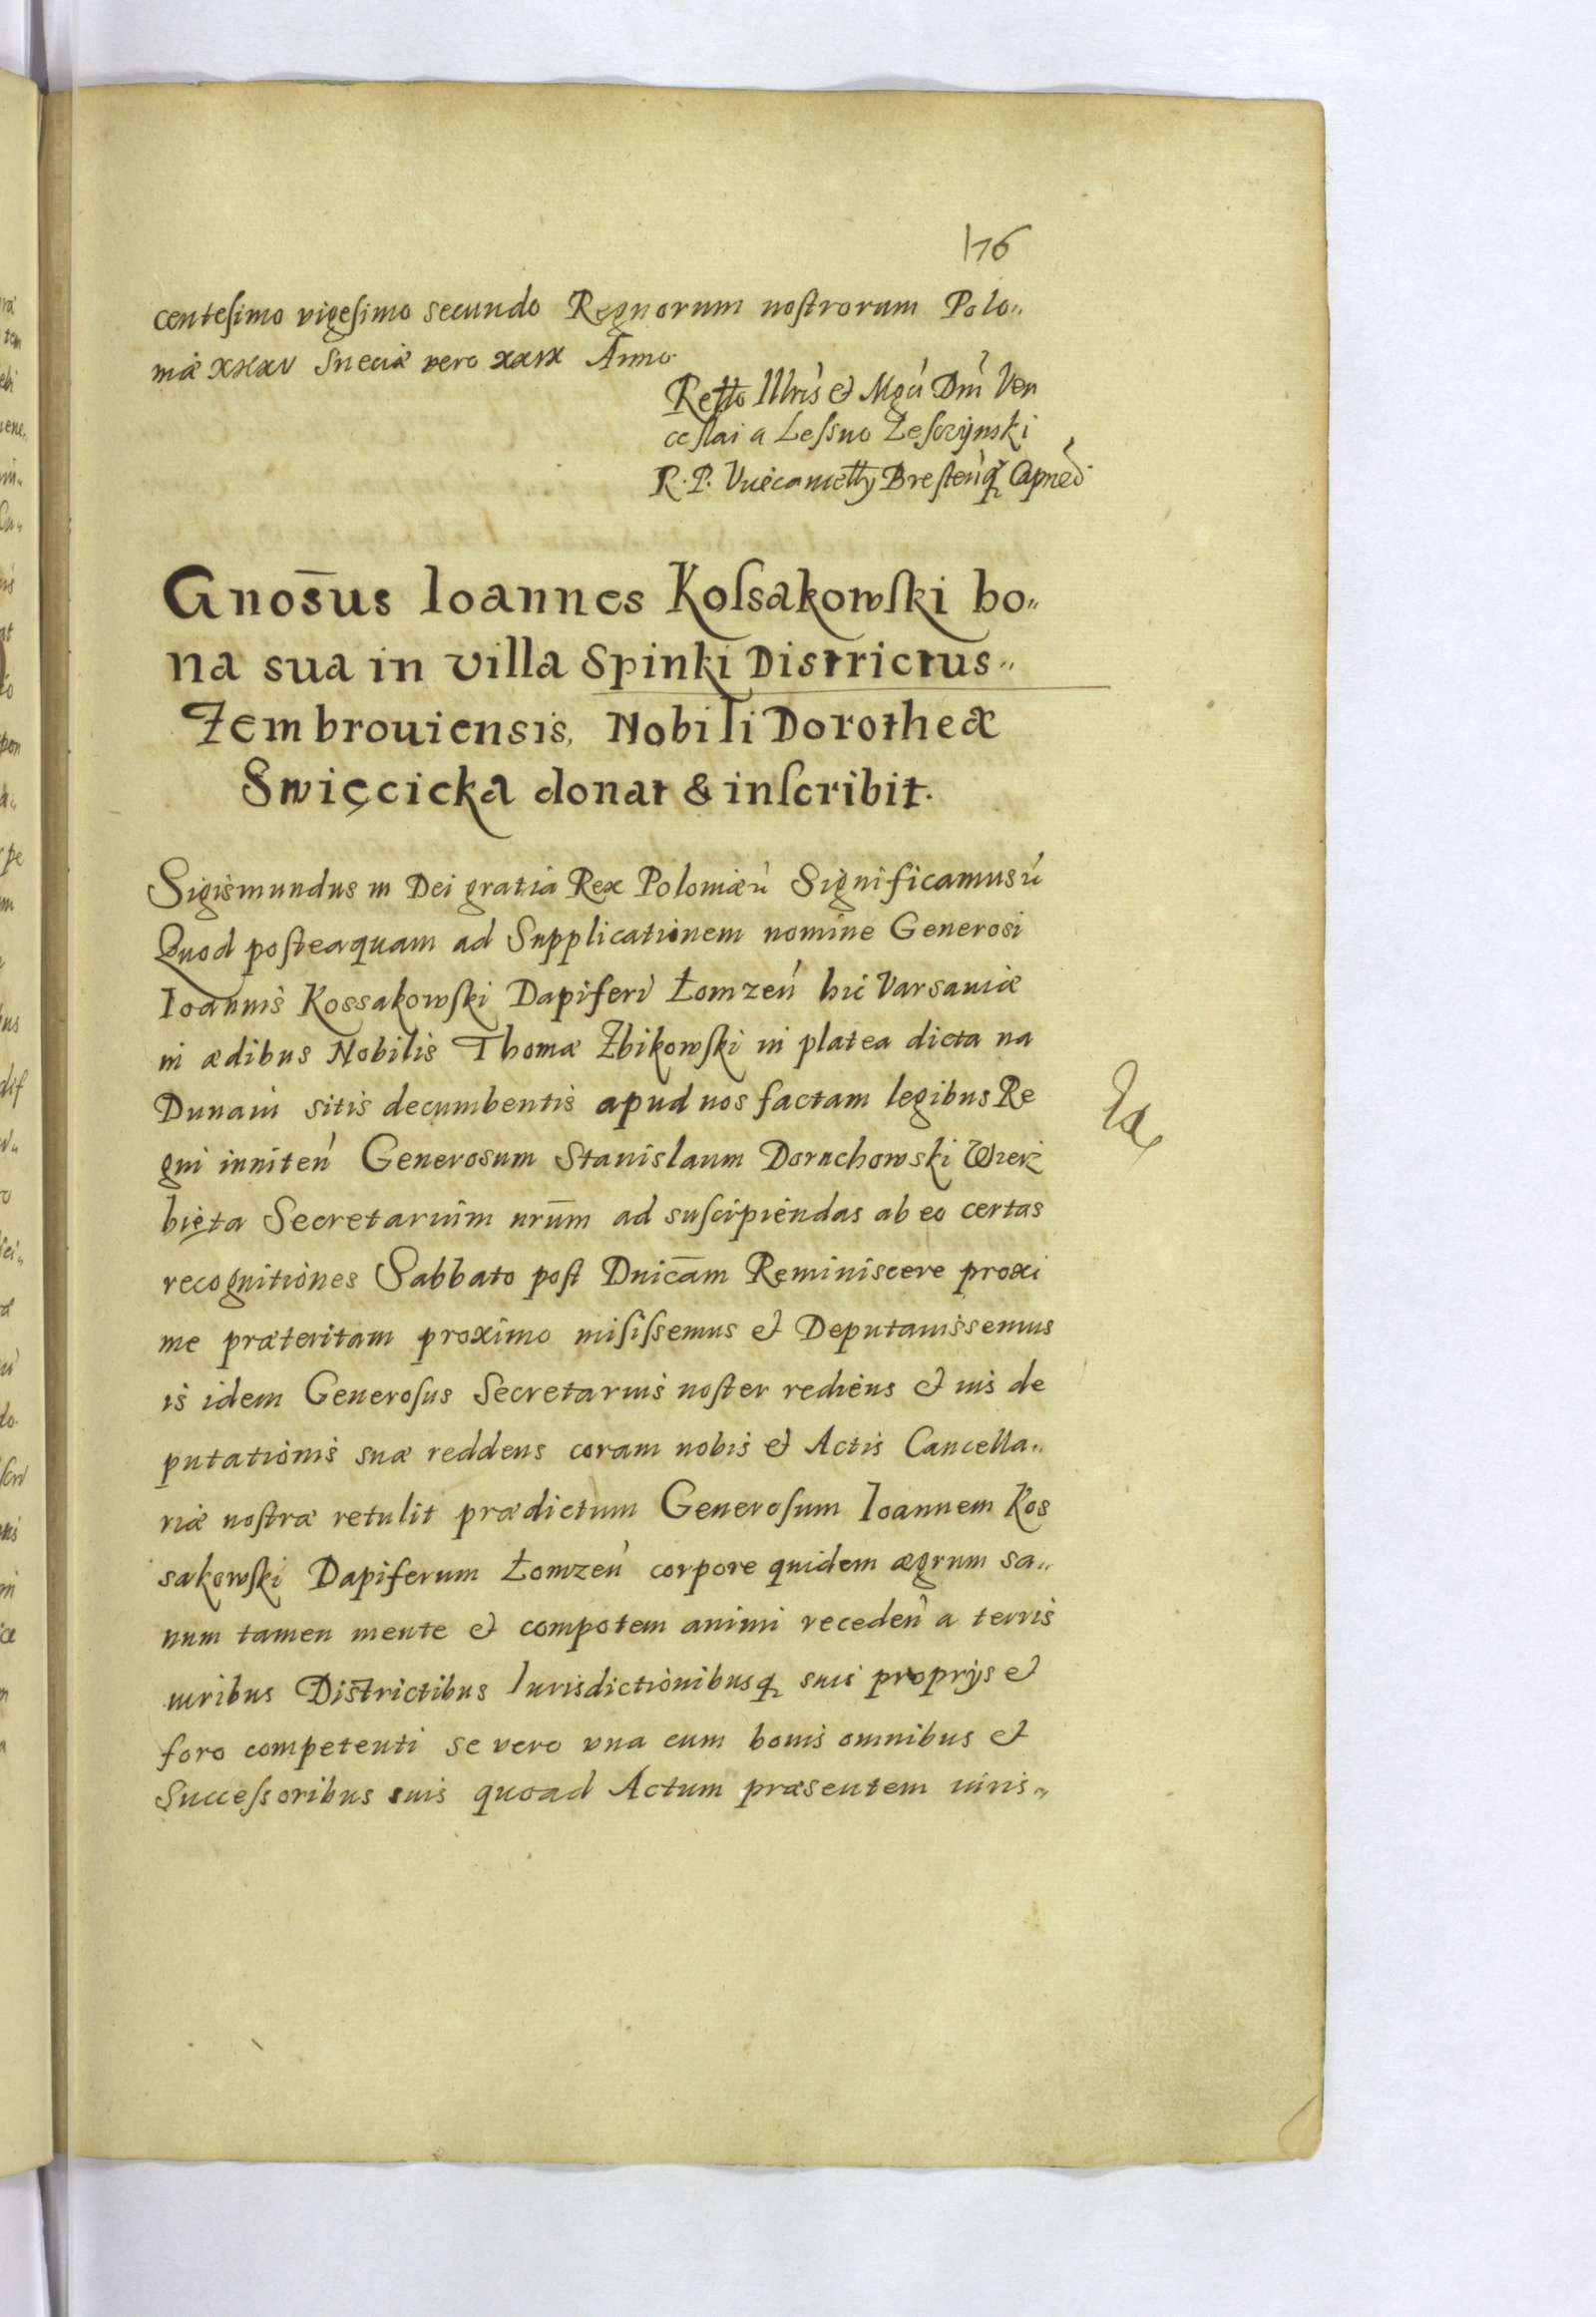 176
centesimo vigesimo secundo Regnorum nostrorum Polo„
niæ XXXV Sueciæ vero XXIX Anno
Retto Illris et Mgci Dni Ven
ceslai a Lessno Lesczynski
R. P. Vicecancetty Bresteńq Capned
Gnos̄us Ioannes Kossakowski bo„
na sua in villa Spinki Districtus„
Zembrouiensis, Nobili Dorotheæ
Swięcicka donat & inscribit.
Sigismundus III Dei gratia Rex Poloniæ Significamus
Quod posteaquam ad Supplicationem nomine Generosi
Ioannis Kossakowski Dapiferi Łomzeń hic Varsauiæ
in ædibus Nobilis Thomæ Zbikowski in platea dicta na
Dunaiu sitis decumbentis apud nos factam legibus Re
gni inniteń Generosum Stanislaum Doruchowski Wierz
bięta Secretarium nrūm ad suscipiendas ab eo certas
recognitiones Sabbato post Dnicam Reminiscere proxi
me præteritam proximo misissemus et Deputauissemus
is idem Generosus Secretarius noster rediens et uis de
putationis suæ reddens coram nobis et Actis Cancella„
riæ nostræ retulit prædictum Generosum Ioannem Kos
sakowski Dapiferum Łomzeń corpore quidem ægrum sa„
num tamen mente et compotem animi recedeń a terris
iuribus Districtibus Iurisdictionibusq suis proprijs et
foro competenti se vero vna cum bonis omnibus et
Successoribus suis quoad Actum præsentem iuris„